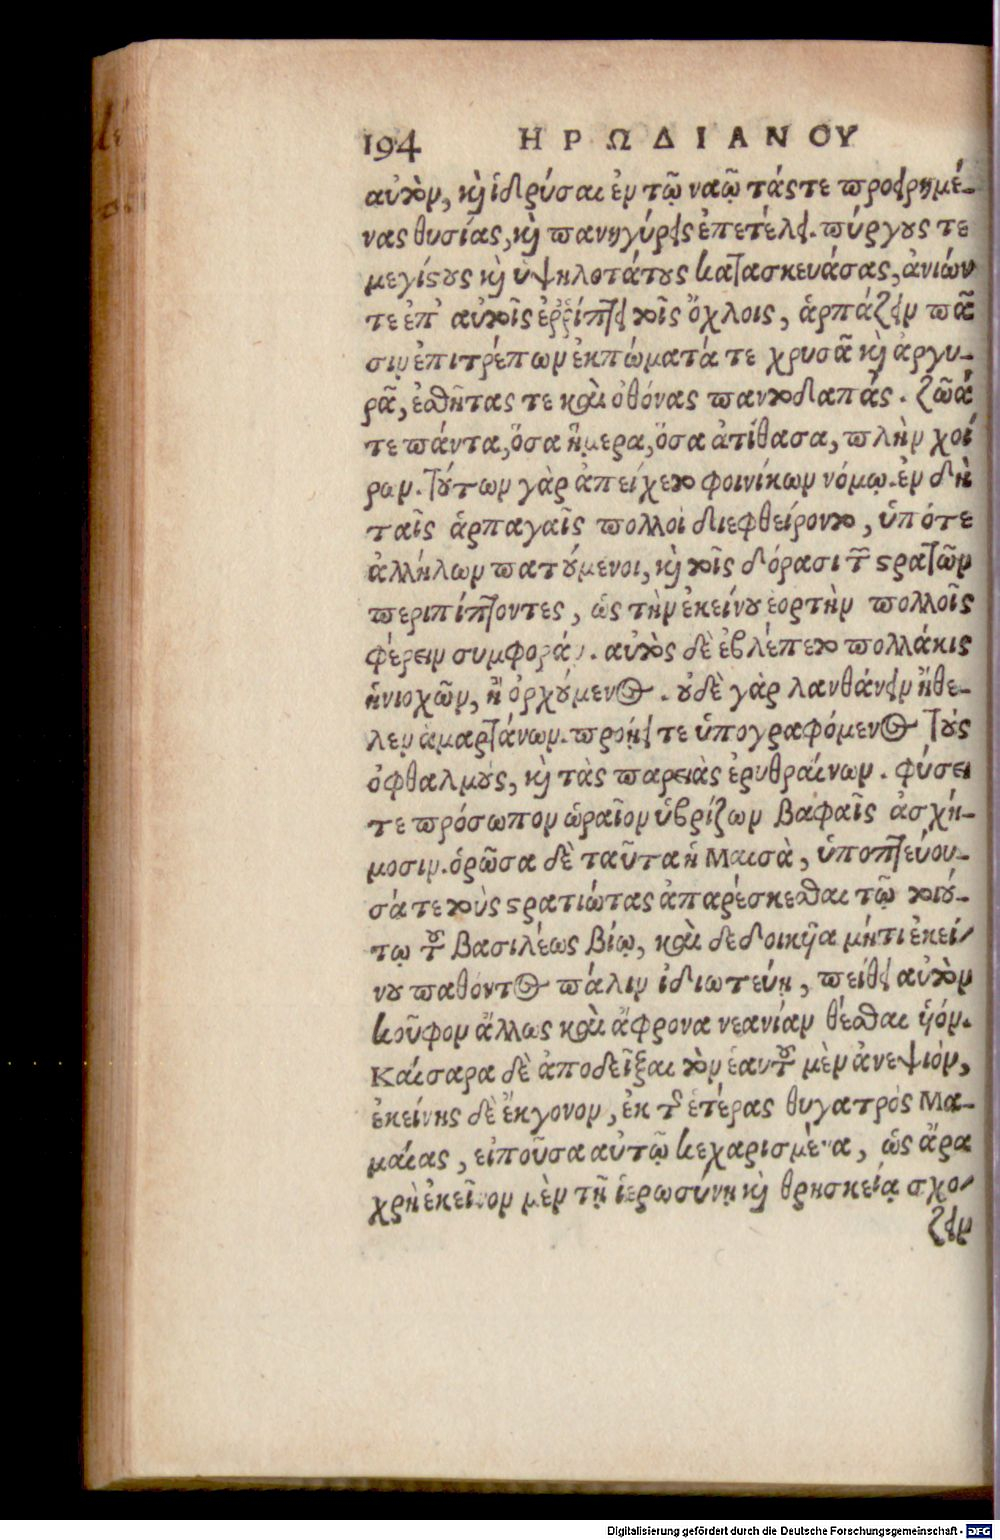 194 ΗΡΩΔΙΑΝΟΥ
αὐτὸν, καὶ ἱδρύσαι ἐν τῷ ναῷ τάς τε προειρημέ-
νας θυσίας, καὶ πανηγύρεις ἐπετέλει. πύργους τε
μεγίστους καὶ ὑψηλοτάτους κατασκευάσας, ἀνιών
τε ἐπ' αὐτοῖς ἐῤῥίπτει τοῖς ὄχλοις, ἁρπάζειν πᾶ
σιν ἐπιτρέπων ἐκπώματά τε χρυσᾶ καὶ ἀργυ-
ρᾶ, ἐσθῆτας τε καὶ ὀθόνας παντοδαπάς. ζῶά
τε πάντα, ὅσα ἥμερα, ὅσα ἀτίθασα, πλὴν χοί
ρων. τούτων γὰρ ἀπείχετο φοινίκων νόμῳ. ἐν δὴ
ταῖς ἁρπαγαῖς πολλοὶ διεφθείροντο, ὑπότε
ἀλλήλων πατούμενοι, καὶ τοῖς δόρασι τῶν στρατιωτῶν
περιπίπτοντες, ὡς τὴν ἐκείνου ἑορτὴν πολλοῖς
φέρειν συμφοράν. αὐτὸς δὲ ἐβλέπετο πολλάκις
ἡνιοχῶν, ἢ ὀρχούμενος. οὐδὲ γὰρ λανθάνειν ἤθε-
λεν ἁμαρτάνων. προῄει τε ὑπογραφόμενος τοὺς
ὀφθαλμούς, καὶ τὰς παρειὰς ἐρυθραίνων. φύσει
τε πρόσωπον ὡραῖον ὑβρίζων βαφαῖς ἀσχή-
μοσιν. ὁρῶσα δὲ ταῦτα ἡ Μαισὰ, ὑποπτεύου-
σά τε τοὺς στρατιώτας ἀπαρέσκεσθαι τῷ τοιού-
τῳ τοῦ βασιλέως βίῳ, καὶ δεδοικῆα μήτι ἐκεί-
νου παθόντος πάλιν ἰδιωτεύῃ, πείθει αὐτὸν
κοῦφον ἄλλως καὶ ἄφρονα νεανίαν θέσθαι ὑόν.
Καίσαρα δὲ ἀποδεῖξαι τὸν ἑαυτοῦ μὲν ἀνεψιόν,
ἐκείνης δὲ ἔκγονον, ἐκ τῆς ἑτέρας θυγατρὸς Μα-
μαίας, εἰποῦσα αὐτῷ κεχαρισμένα, ὡς ἄρα
χρὴ ἐκεῖνον μὲν τῇ ἱερωσύνῃ καὶ θρησκείᾳ σχο-
ζειν
Digitalisierung gefördert durch die Deutsche Forschungsgemeinschaft - DFG